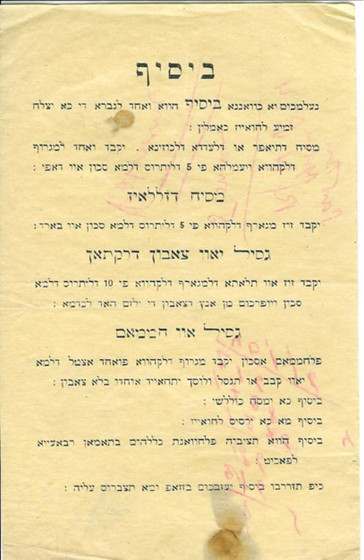 ביסיף
נעלמכום יא כוואננא ביסיף הווא ואחד לגברא די כא יצלח
זמיע לחואייז כאמלין :
מסיח דתיאפר או דלעדדא דלכוזינא . יקבד ואחד למגרוף
דלקהווא ויעמלהא פי 5 דליתרוס דלמא סכון איו דאפי :
מסיח דזללאיז
יקבד זוז מגארף דלקהווא פי 5 דליתרוס דלמא סכון או בארד :
גסיל יאוו צאבון דלקתאן
יקבד זוז או תלאתא דלמגארף דלקהווא פי 10 דליתרוס דלמא
סכון ויופרכום מן אנץ דצאבון די ילזם האד לקדמא :
גסיל או חממאם
פלחממאם אסכון יקבד מגרוף דלקהווא פואחד אצטל דלמא
יאוו קבב או תגסל ולוסך יתהאייד אוחדו בלא צאבון :
ביסיף כא ימסח כוללשי :
ביסיף מא כא ירסיס לחואייז :
ביסיף הווא תציביה פלחוואנת כללהום בתאמאן רבאעייא
לפאכיט :
כיפ תזררבו ביסיף יעזבכום בזזאפ ומא תצברוס עליה :